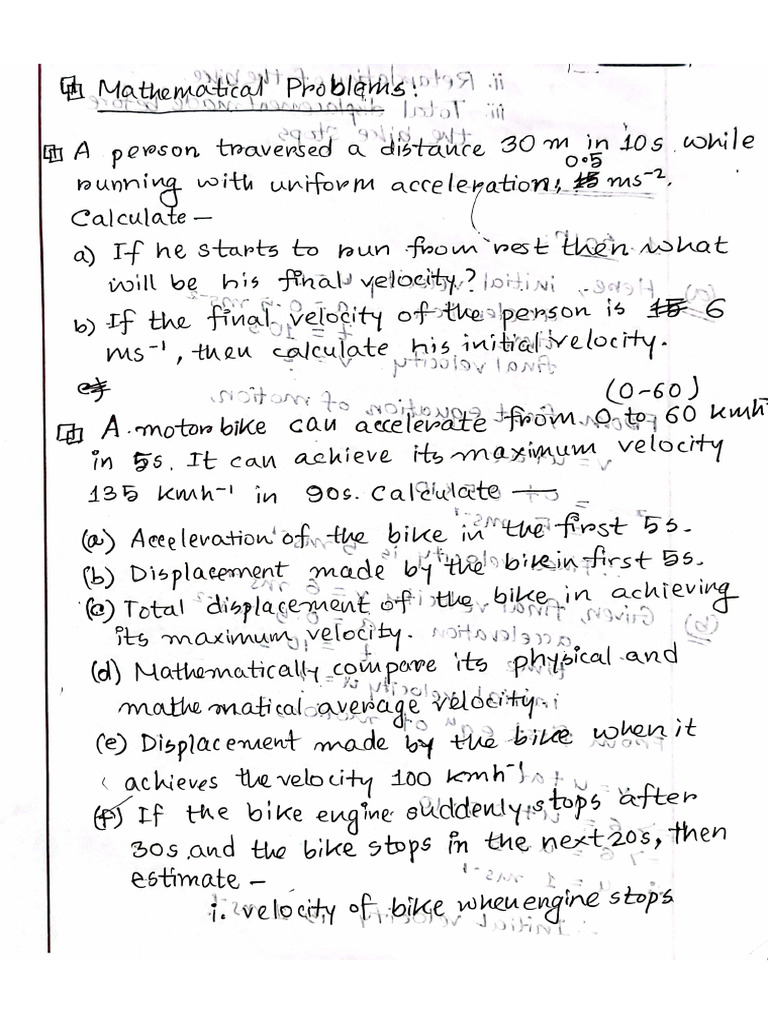 Mathematical Problems:
A person traversed a distance 30 m in 10s while
0.5
running with uniform acceleration, ms⁻².
Calculate —
a) If he starts to run from rest then what
will be his final velocity?
b) If the final velocity of the person is 15 6
ms⁻¹, then calculate his initial velocity.
(0-60)
A motorbike can accelerate from 0 to 60 kmh
in 5s. It can achieve its maximum velocity
135 kmh⁻¹ in 90s. Calculate —
(a) Acceleration of the bike in the first 5s.
(b) Displacement made by the bike in first 5s.
(c) Total displacement of the bike in achieving
its maximum velocity.
(d) Mathematically compare its physical and
mathematical average velocity.
(e) Displacement made by the bike when it
achieves the velocity 100 kmh⁻¹
(f) If the bike engine suddenly stops after
30s and the bike stops in the next 20s, then
estimate —
i. velocity of bike when engine stops